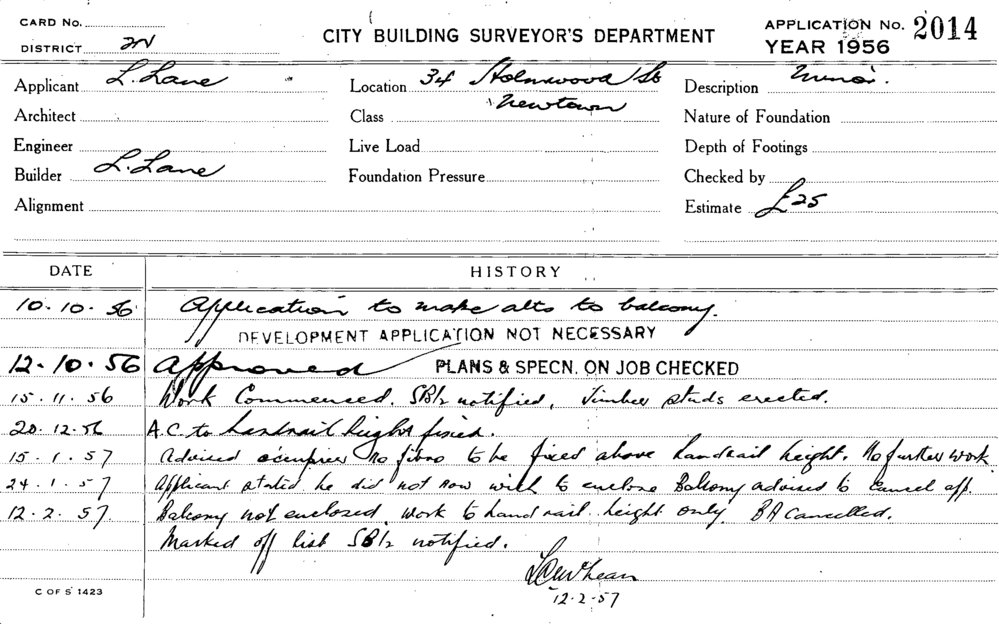 CARD No.
DISTRICT
CITY BUILDING SURVEYOR'S DEPARTMENT
APPLICATION No. 2014
YEAR 1956
Applicant L. Lane
Location 34 Holmwood St
Newtown
Description Minor.
Architect
Class
Nature of Foundation
Engineer
Live Load
Depth of Footings
Builder L. Lane
Foundation Pressure
Checked by
Alignment
Estimate £25
DATE HISTORY
10.10.56 Application to make alts to balcony.
DEVELOPMENT APPLICATION NOT NECESSARY
12.10.56 Approved PLANS & SPECN. ON JOB CHECKED
15.11.56 Work Commenced. SB/2 notified. Timber studs erected.
20.12.56 A.C. to handrail height fixed.
15.1.57 Advised occupier no fibro to be fixed above handrail height. No further work
24.1.57 Applicant stated he did not now wish to enclose Balcony advised to cancel app.
12.2.57. Balcony not enclosed. work to hand rail height only. BA Cancelled.
Marked off list SB/2 notified.
12.2.57
C OF S 1423